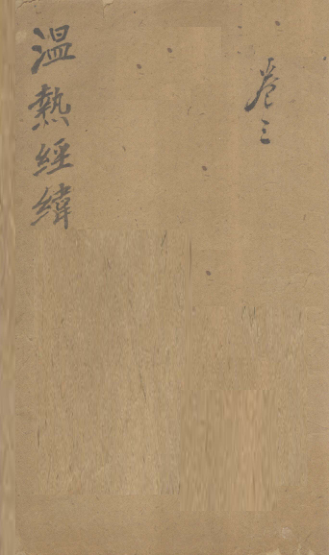 卷三
溫熱經緯